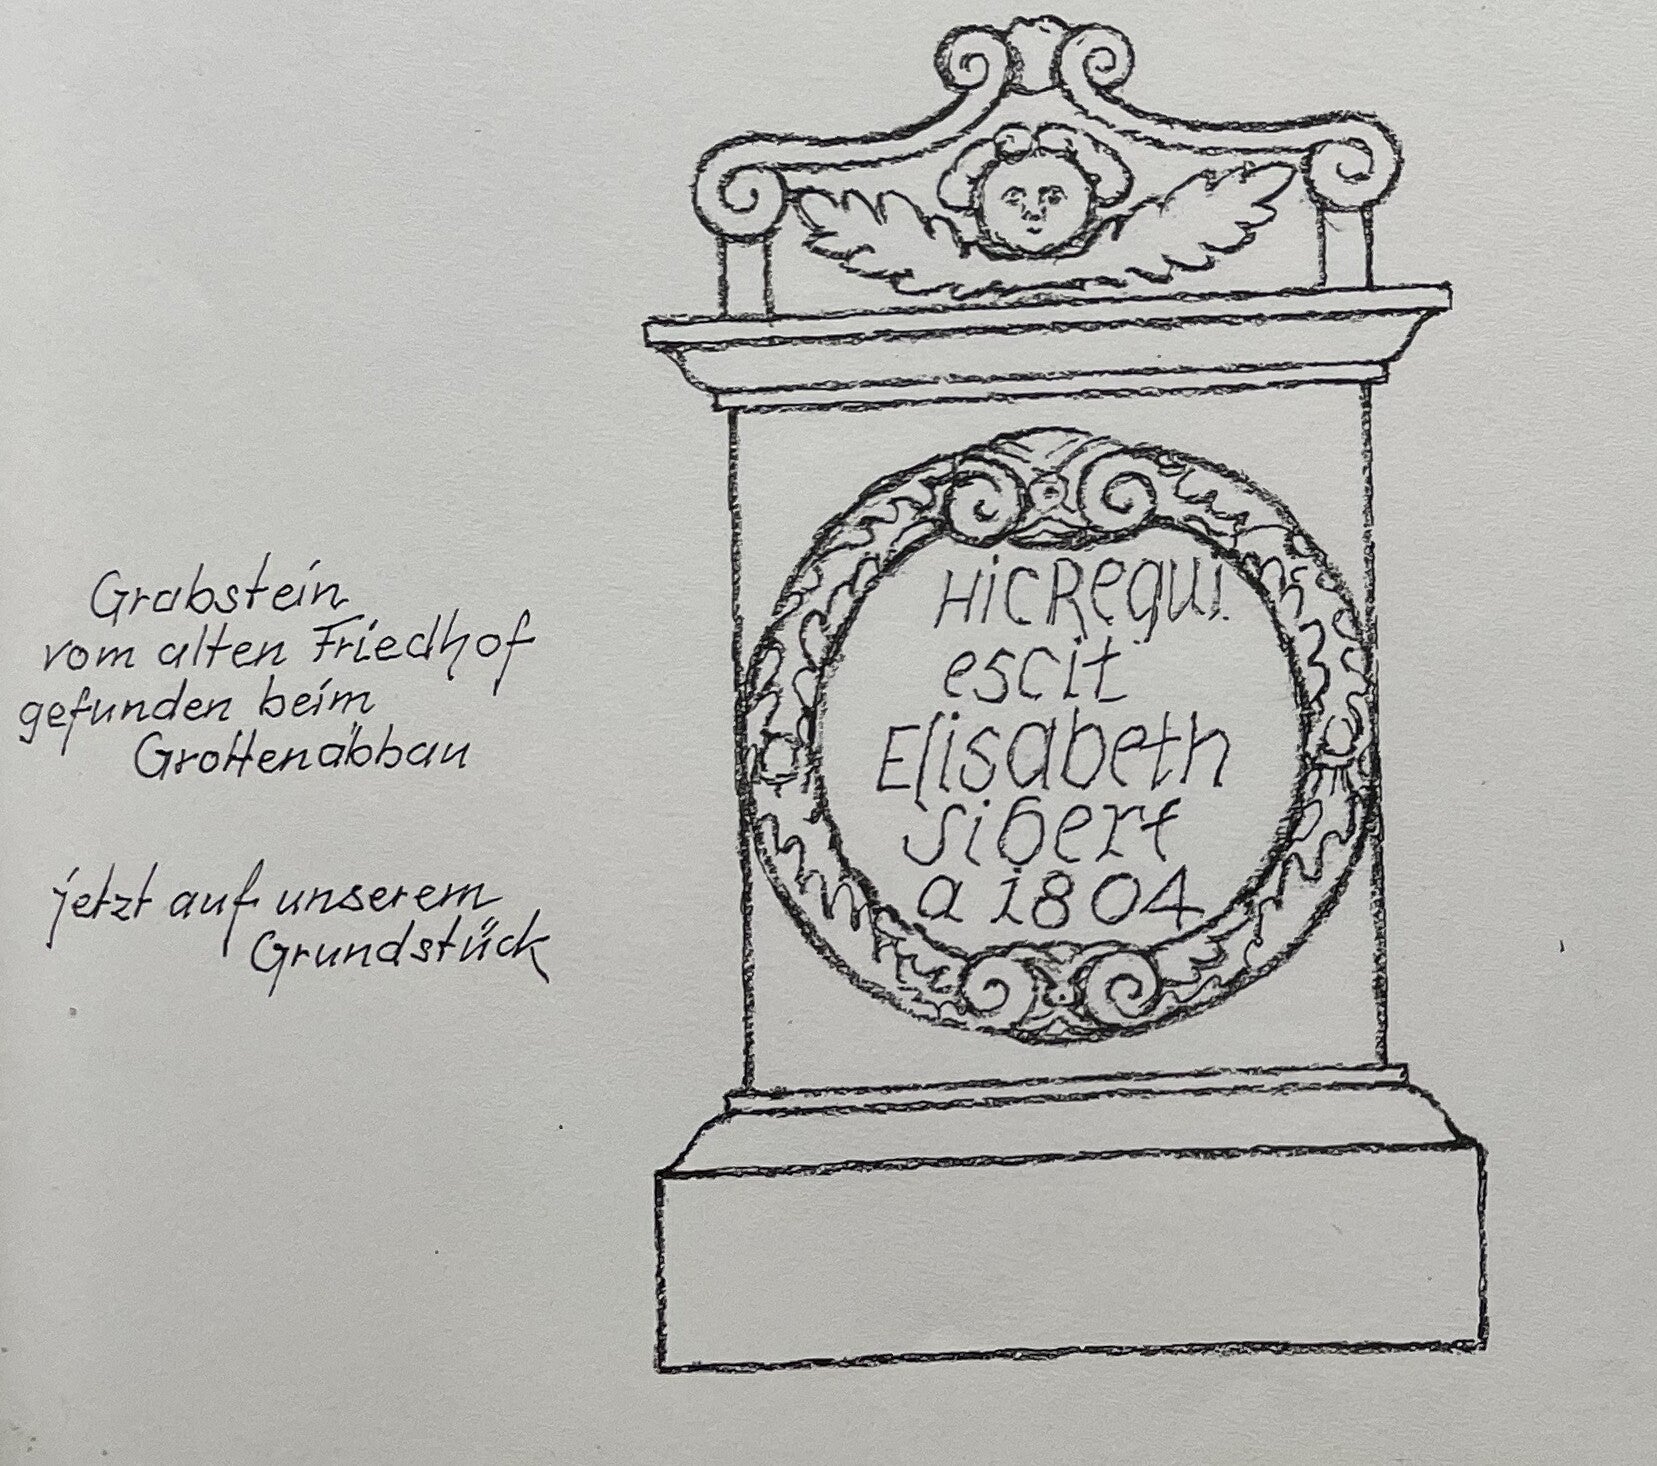 Grabstein
vom alten Friedhof
gefunden beim
Grottenabbau
jetzt auf unserem
Grundstück
HicRequi
escit
Elisabeth
Sibert
a 1804